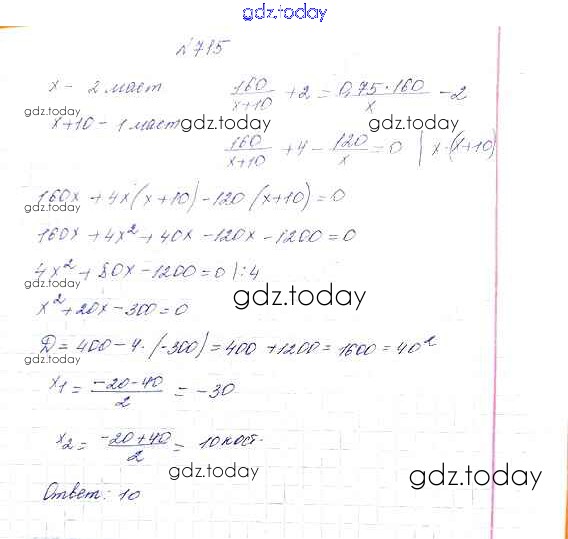 gdz.today
№715
x - 2 маст 160/(x+10) + 2 = 0,75·160/x - 2
gdz.today
x+10 - 1 маст gdz.today gdz.today
160/(x+10) + 4 - 120/x = 0 | x·(x+10)
160x + 4x(x+10) - 120(x+10) = 0
gdz.today
160x + 4x² + 40x - 120x - 1200 = 0
4x² + 80x - 1200 = 0 |:4
gdz.today
x² + 20x - 300 = 0
gdz.today
D = 400 - 4·(-300) = 400 + 1200 = 1600 = 40²
gdz.today
x₁ = (-20-40)/2 = -30
x₂ = (-20+40)/2 = 10 кост.
gdz.today gdz.today
Ответ: 10